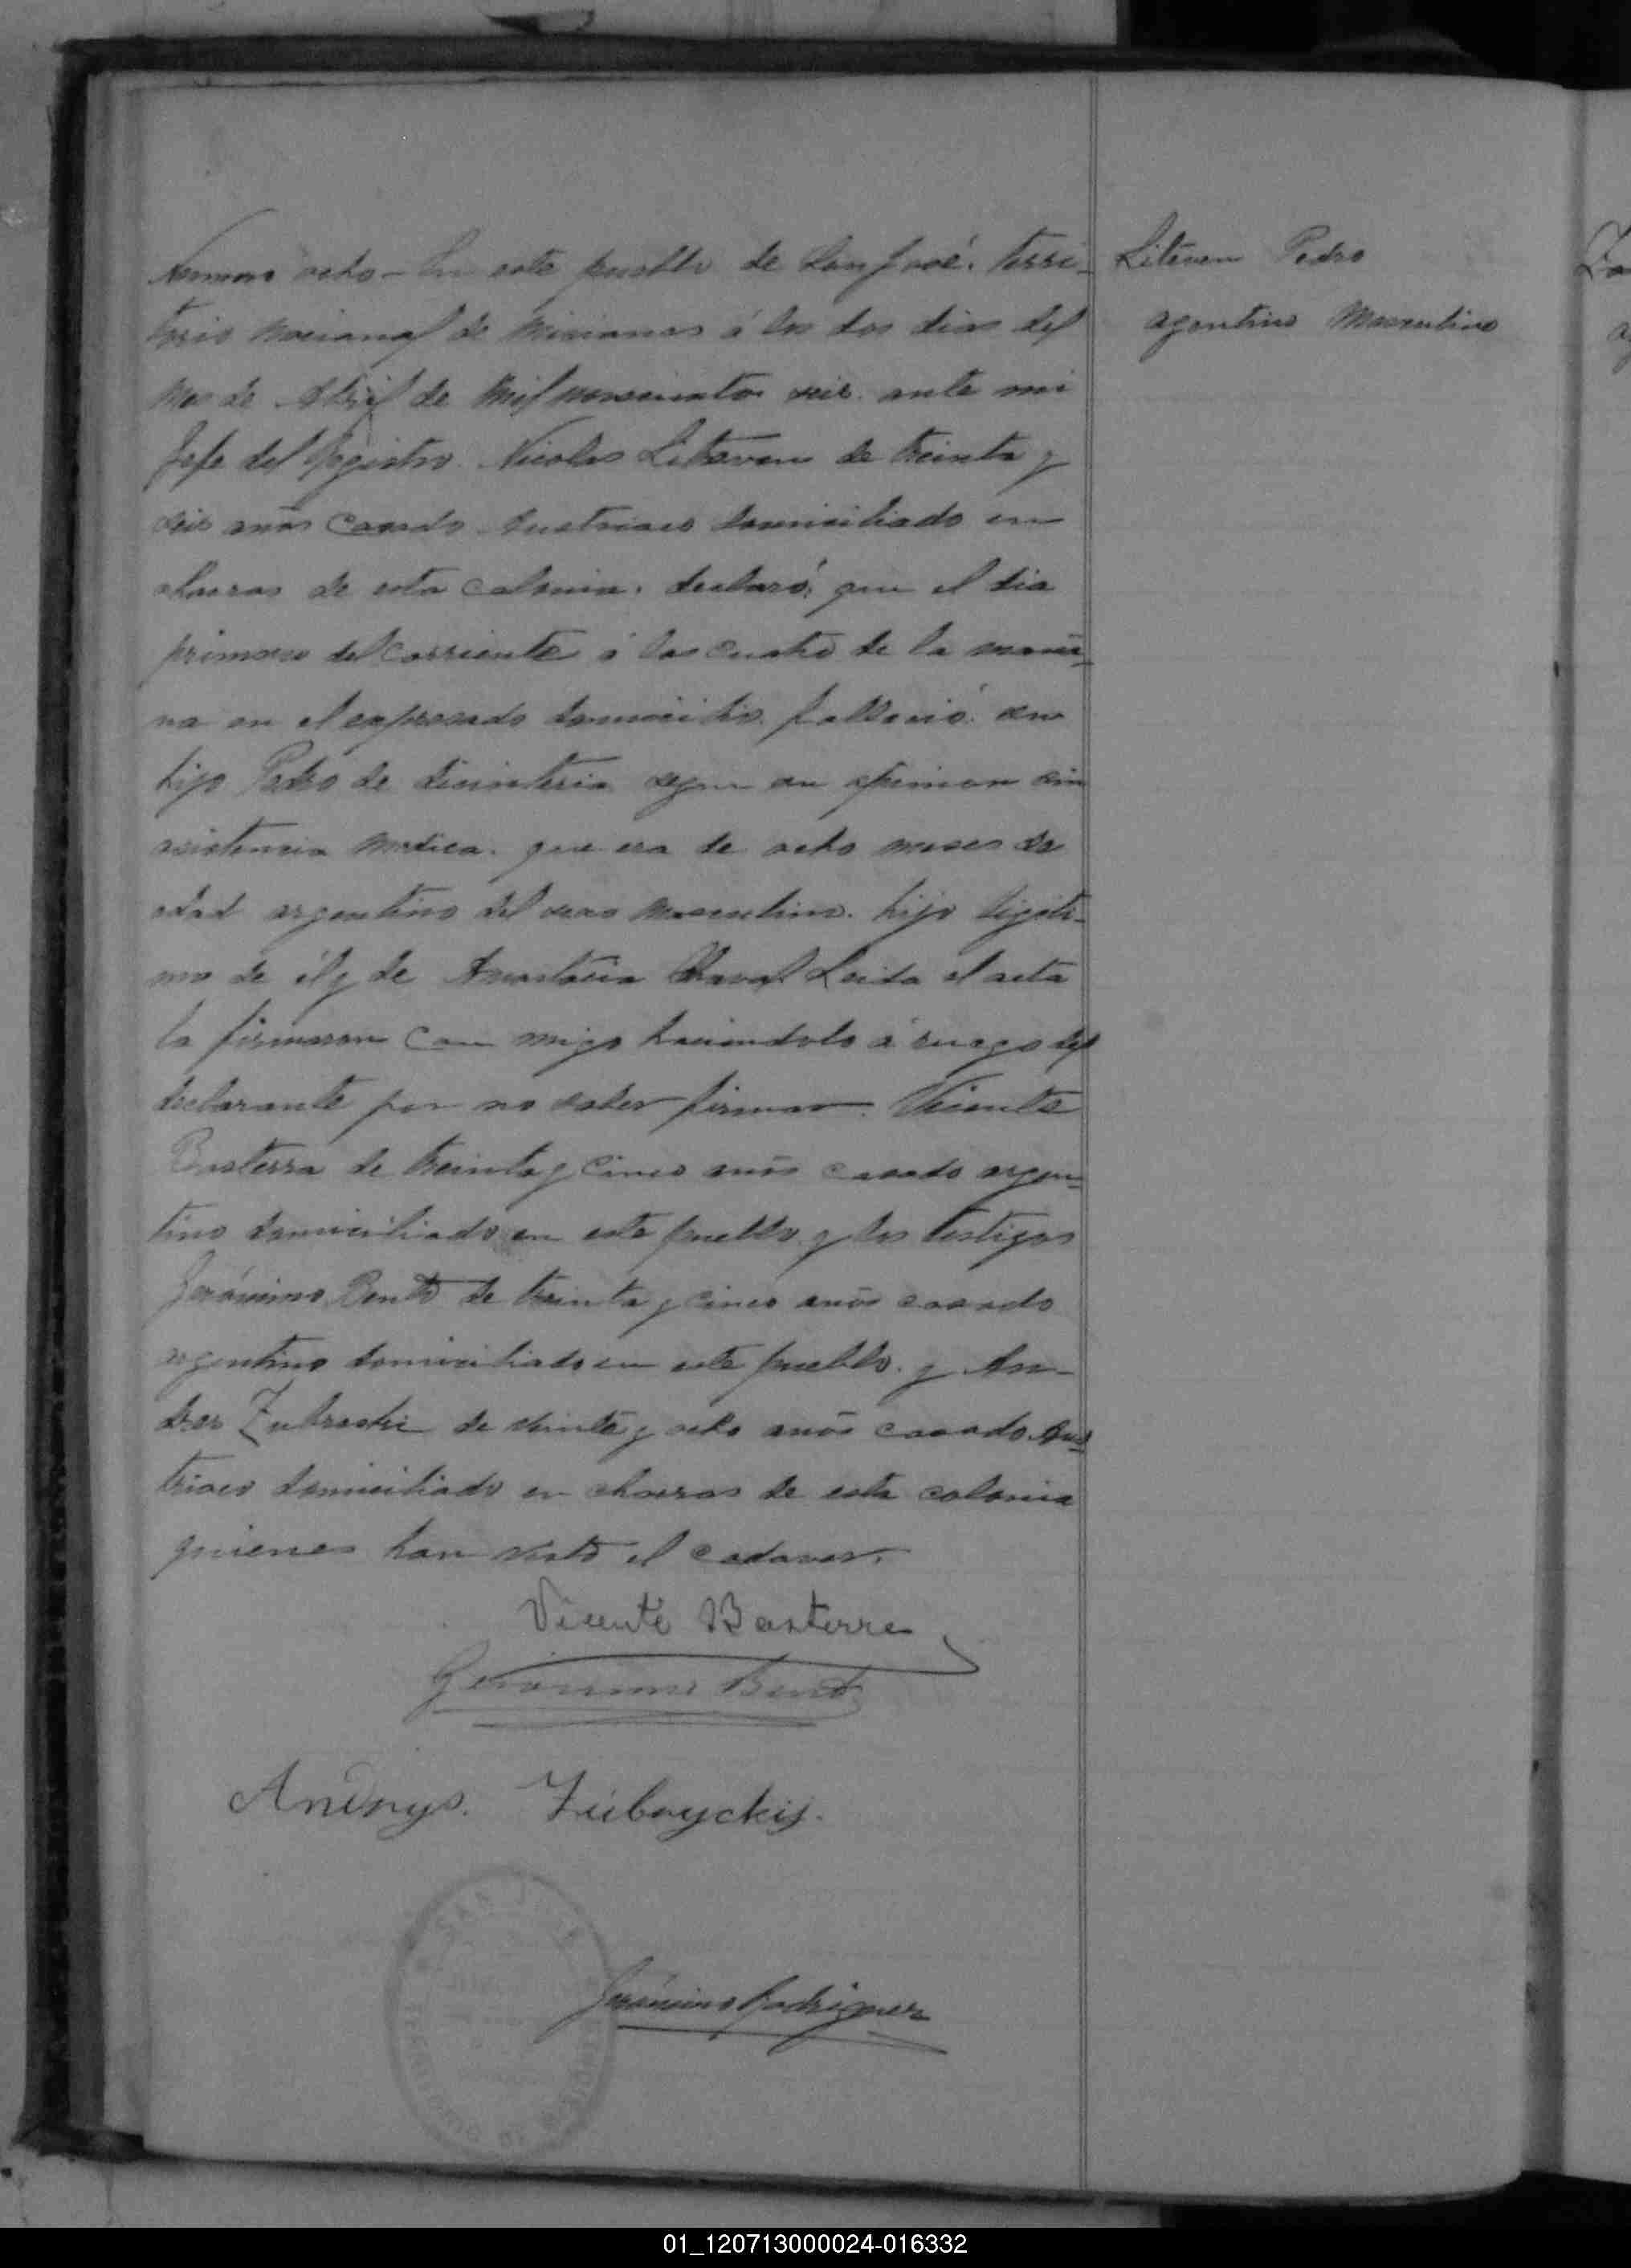 Numero ocho - En este pueblo de San José. terri-
torio nacional de Misiones á los dos dias del
mes de Abril de mil novecientos seis. ante mi
Jefe del Registro. Nicolas Litaven de treinta y
seis años casado Austriaco domiciliado en
chacras de esta colonia. declaró: que el dia
primero del corriente á las cuatro de la maña-
na en el expresado domicilio. falleció su
hijo Pedro de disinteria segun su opinion sin
asistencia medica. que era de ocho meses de
edad argentino del sexo masculino. hijo legiti-
mo de él y de Anastacia Leida el acta
la firmaron con migo haciendolo á ruego del
declarante por no saber firmar. Vicente
Basterra de treinta y cinco años casado argen-
tino domiciliado en este pueblo y los testigos
Jerónimo Bento de treinta y cinco años casado
argentino domiciliado en este pueblo. y An-
dres Zubreski de veinte y ocho años casado Aus-
triaco domiciliado en chacras de esta colonia
quienes han visto el cadaver.
Vicente Basterra
Geronimo Bento
Andrys. Zubryckij.
Jerónimo Rodriguez
SAN JOSE
Liteven Pedro
agentino Masculino
01_120713000024-016332